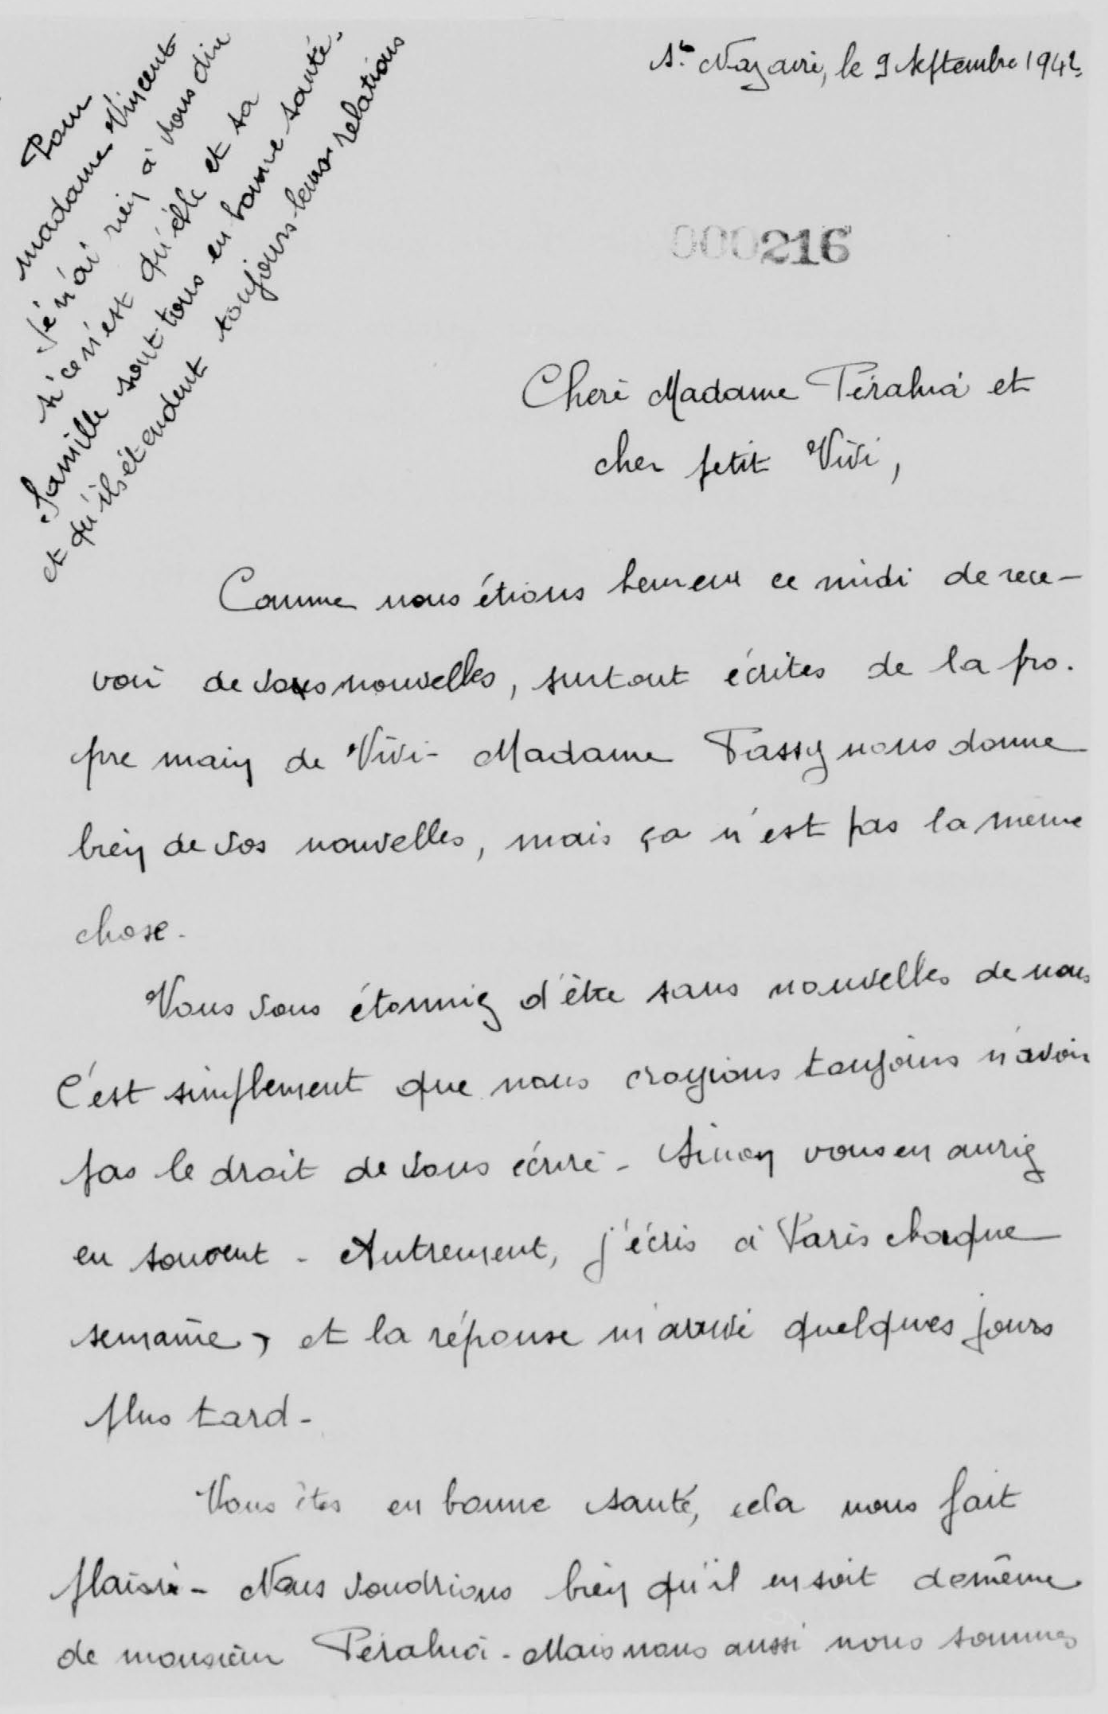 St Nazaire, le 9 Septembre 1942
Pour
madame Vincent
Je n'ai rien à vous dire
si ce n'est qu'elle et sa
famille sont tous en bonne santé,
et qu'ils étendent toujours leurs relations
000216
Chère Madame Pérahia et
cher petit Vivi,
Comme nous étions heureux ce midi de rece-
voir de vos nouvelles, surtout écrites de la pro-
pre main de Vivi - Madame Passy nous donne
bien de vos nouvelles, mais ça n'est pas la même
chose.
Vous vous étonniez d'être sans nouvelles de nous
C'est simplement que nous croyions toujours n'avoir
pas le droit de vous écrire - Sinon vous en auriez
eu souvent - Autrement, j'écris à Paris chaque
semaine, et la réponse m'arrive quelques jours
plus tard -
Vous êtes en bonne santé, cela nous fait
plaisir - Nous voudrions bien qu'il en soit de même
de monsieur Pérahia - Mais nous aussi nous sommes